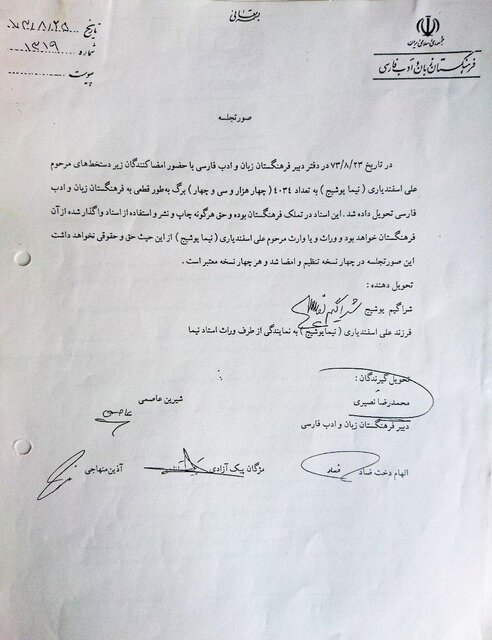 بسمه تعالی
جمهوری اسلامی ایران
فرهنگستان زبان و ادب فارسی
تاریخ ۱۳۷۳/۸/۲۵
شماره ۱۳۱۹
پیوست
صورتجلسه
در تاریخ ۷۳/۸/۲۳ در دفتر دبیر فرهنگستان زبان و ادب فارسی با حضور امضاکنندگان زیر دستخط‌های مرحوم
علی اسفندیاری ( نیما یوشیج ) به تعداد ۴۰۳۴ ( چهار هزار و سی و چهار ) برگ به‌طور قطعی به فرهنگستان زبان و ادب
فارسی تحویل داده شد . این اسناد در تملک فرهنگستان بوده و حق هرگونه چاپ و نشر و استفاده از اسناد واگذار شده از آن
فرهنگستان خواهد بود و وراث و یا وارث مرحوم علی اسفندیاری ( نیما یوشیج ) از این حیث حق و حقوقی نخواهد داشت
این صورتجلسه در چهار نسخه تنظیم و امضا شد و هر چهار نسخه معتبر است .
تحویل دهنده :
شراگیم یوشیج
فرزند علی اسفندیاری ( نیما یوشیج ) به نمایندگی از طرف وراث اسناد نیما
تحویل گیرندگان :
محمدرضا نصیری
شیرین عاصمی
دبیر فرهنگستان زبان و ادب فارسی
الهام دخت ضاد
مژگان پیک آزادی
آذین منهاجی